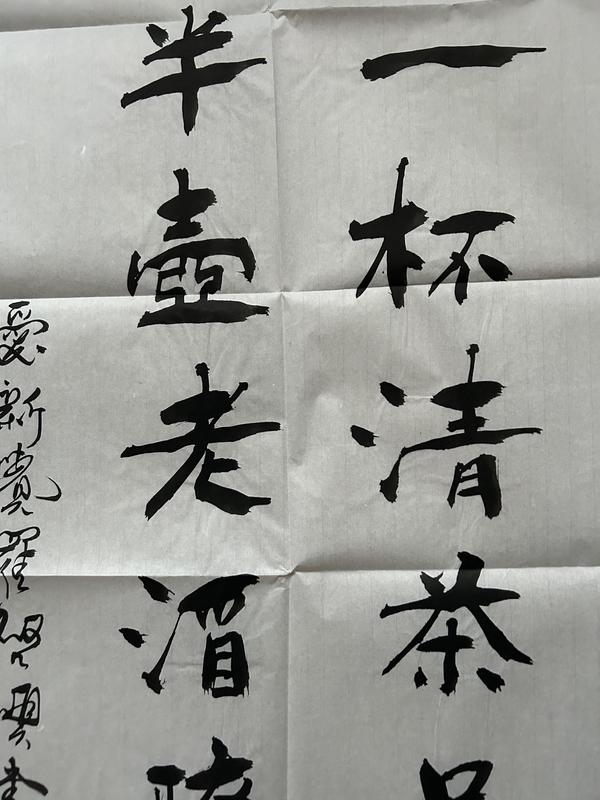 一杯清茶品
半壶老酒
愛新覺羅